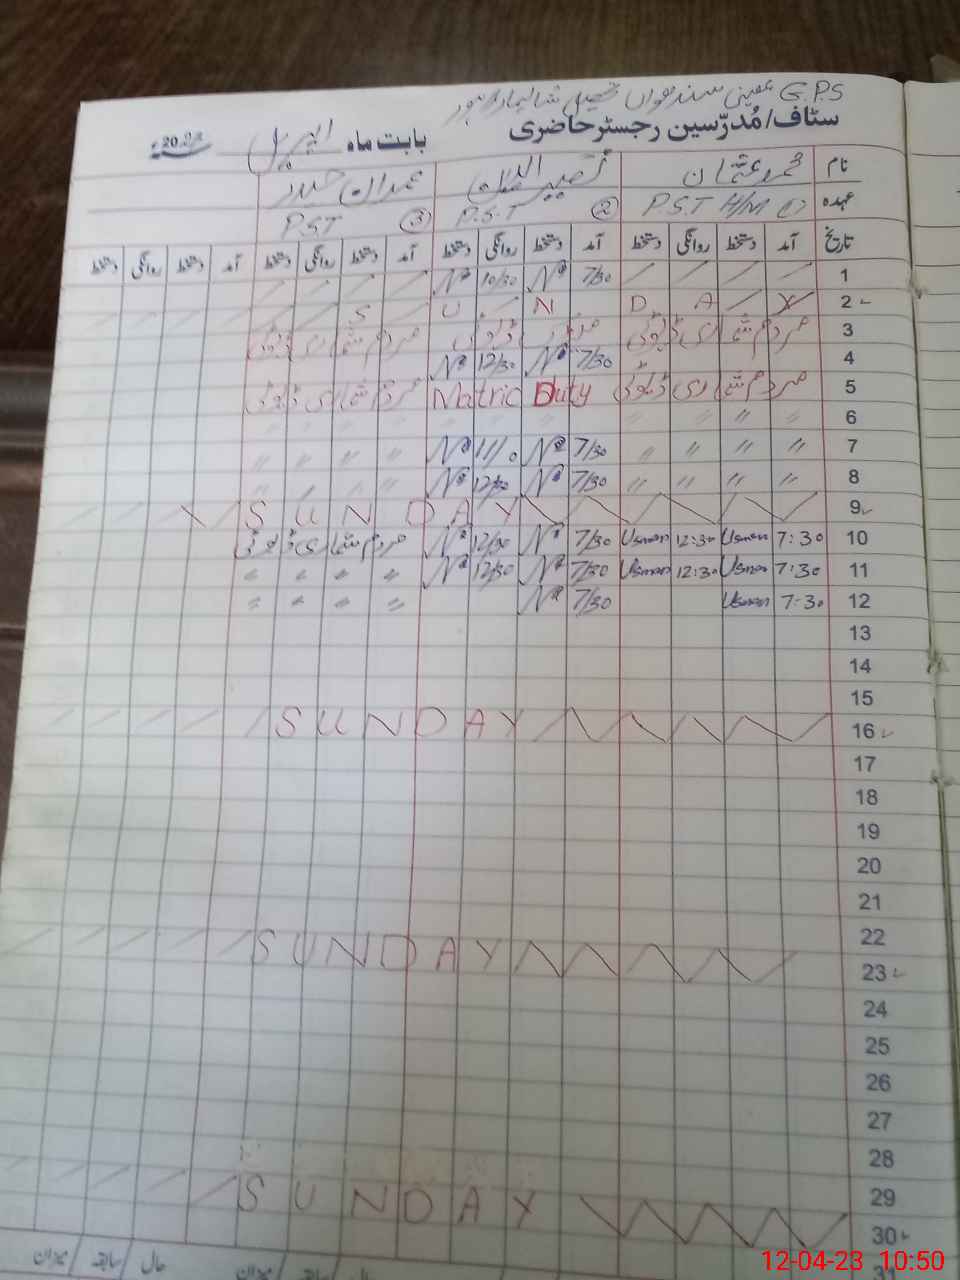 G.P.S معینی سندھواں تحصیل شالیمار لاہور
سٹاف/مُدرّسین رجسٹر حاضری بابت ماہ اپریل 2023ء
نام محمد عثمان نصیر الدین عمران حیدر
عہدہ (1) P.S.T H/M (2) P.S.T (3) P.S.T
تاریخ آمد دستخط روانگی دستخط آمد دستخط روانگی دستخط آمد دستخط روانگی دستخط آمد دستخط روانگی دستخط
1 7/30 10/30
2 S U N D A Y
3 مردم شماری ڈیوٹی مردم شماری ڈیوٹی
4 7/30 12/30
5 مردم شماری ڈیوٹی Matric Duty مردم شماری ڈیوٹی
6 " " "
7 " " " " 7/30 11/0 " " " "
8 " " " " 7/30 12/30 " " " "
9 S U N D A Y
10 7:30 Usman 12:30 Usman 7/30 12/30 مردم شماری ڈیوٹی
11 7:30 Usman 12:30 Usman 7/30 12/30 " " " "
12 7:30 Usman 7/30 " " " "
13
14
15
16 S U N D A Y
17
18
19
20
21
22
23 S U N D A Y
24
25
26
27
28
29
30 S U N D A Y
31
حال سابقہ میزان میزان
12-04-23 10:50